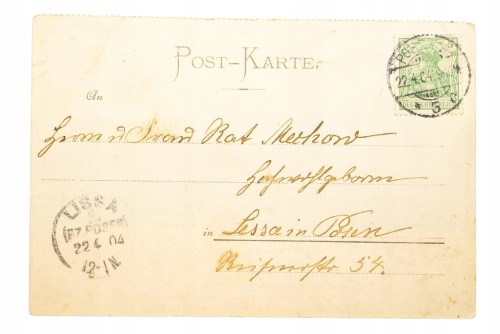 POST-KARTE.
An
Herrn u Frau Rat Mechow
Hochwohlgeborn
in Lissa in Posen
54.
LISSA
(BZ. POSEN)
22 4 04
12-1N
POSEN
22.4.04